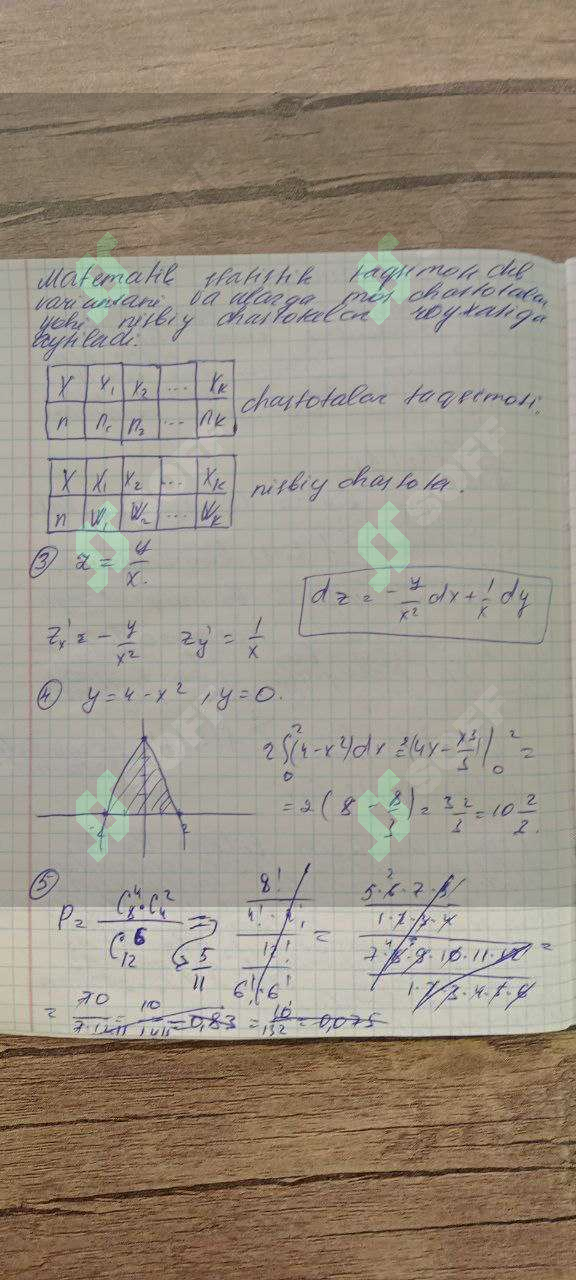 Matematik statistik taqsimoti deb
variantani va ularga mos chastotalar
yoki nisbiy chastotalar ro'yxatiga
aytiladi.
X X₁ X₂ ... Xₖ
n n₁ n₂ ... nₖ
chastotalar taqsimoti.
X X₁ X₂ ... Xₖ
n W₁ W₂ ... Wₖ
nisbiy chastota.
③ z = y/x.
z'x = - y/x² z'y = 1/x
dz = - y/x² dx + 1/x dy
④ y = 4 - x², y = 0.
-2 2
2∫₀²(4-x²)dx = 2(4x - x³/3)|₀² =
= 2(8 - 8/3) = 32/3 = 10 2/3.
⑤ P = C₈⁴·C₄²/C₁₂⁶ = 5/11
8!/4!·4!
12!/6!·6! =
5·6·7·8/1·2·3·4
7·8·9·10·11·12/1·2·3·4·5·6 =
= 10/132 = 0,075
SOFF